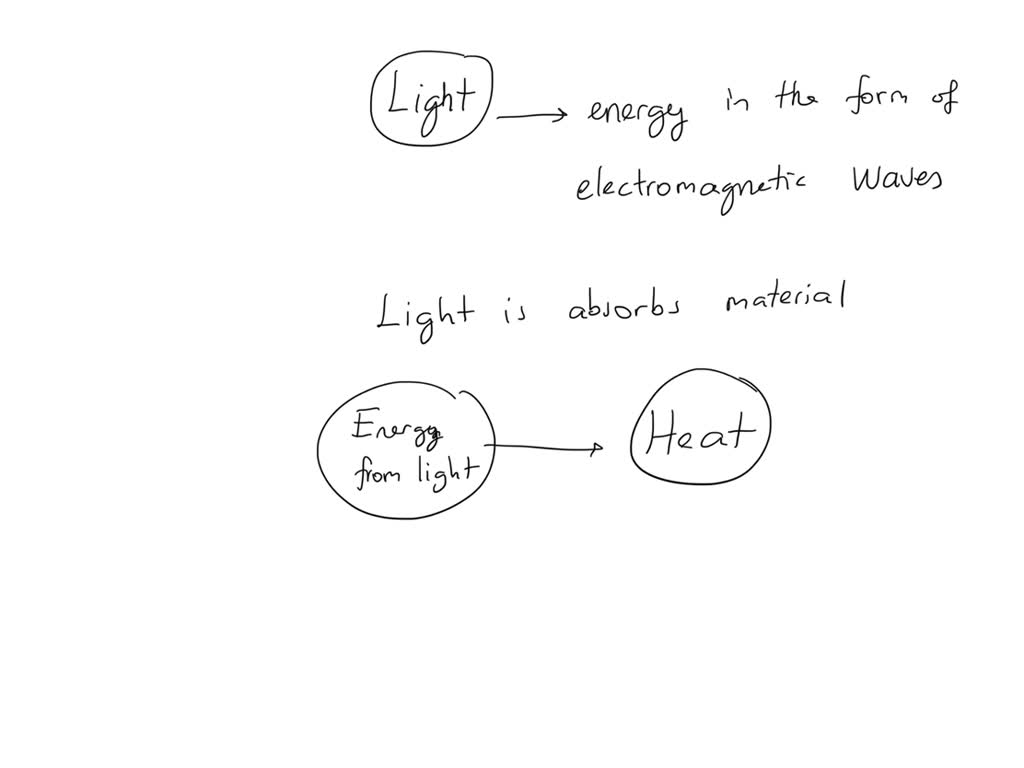 Light → energy in the form of
electromagnetic waves
Light is absorbs material
Energy
from light → Heat